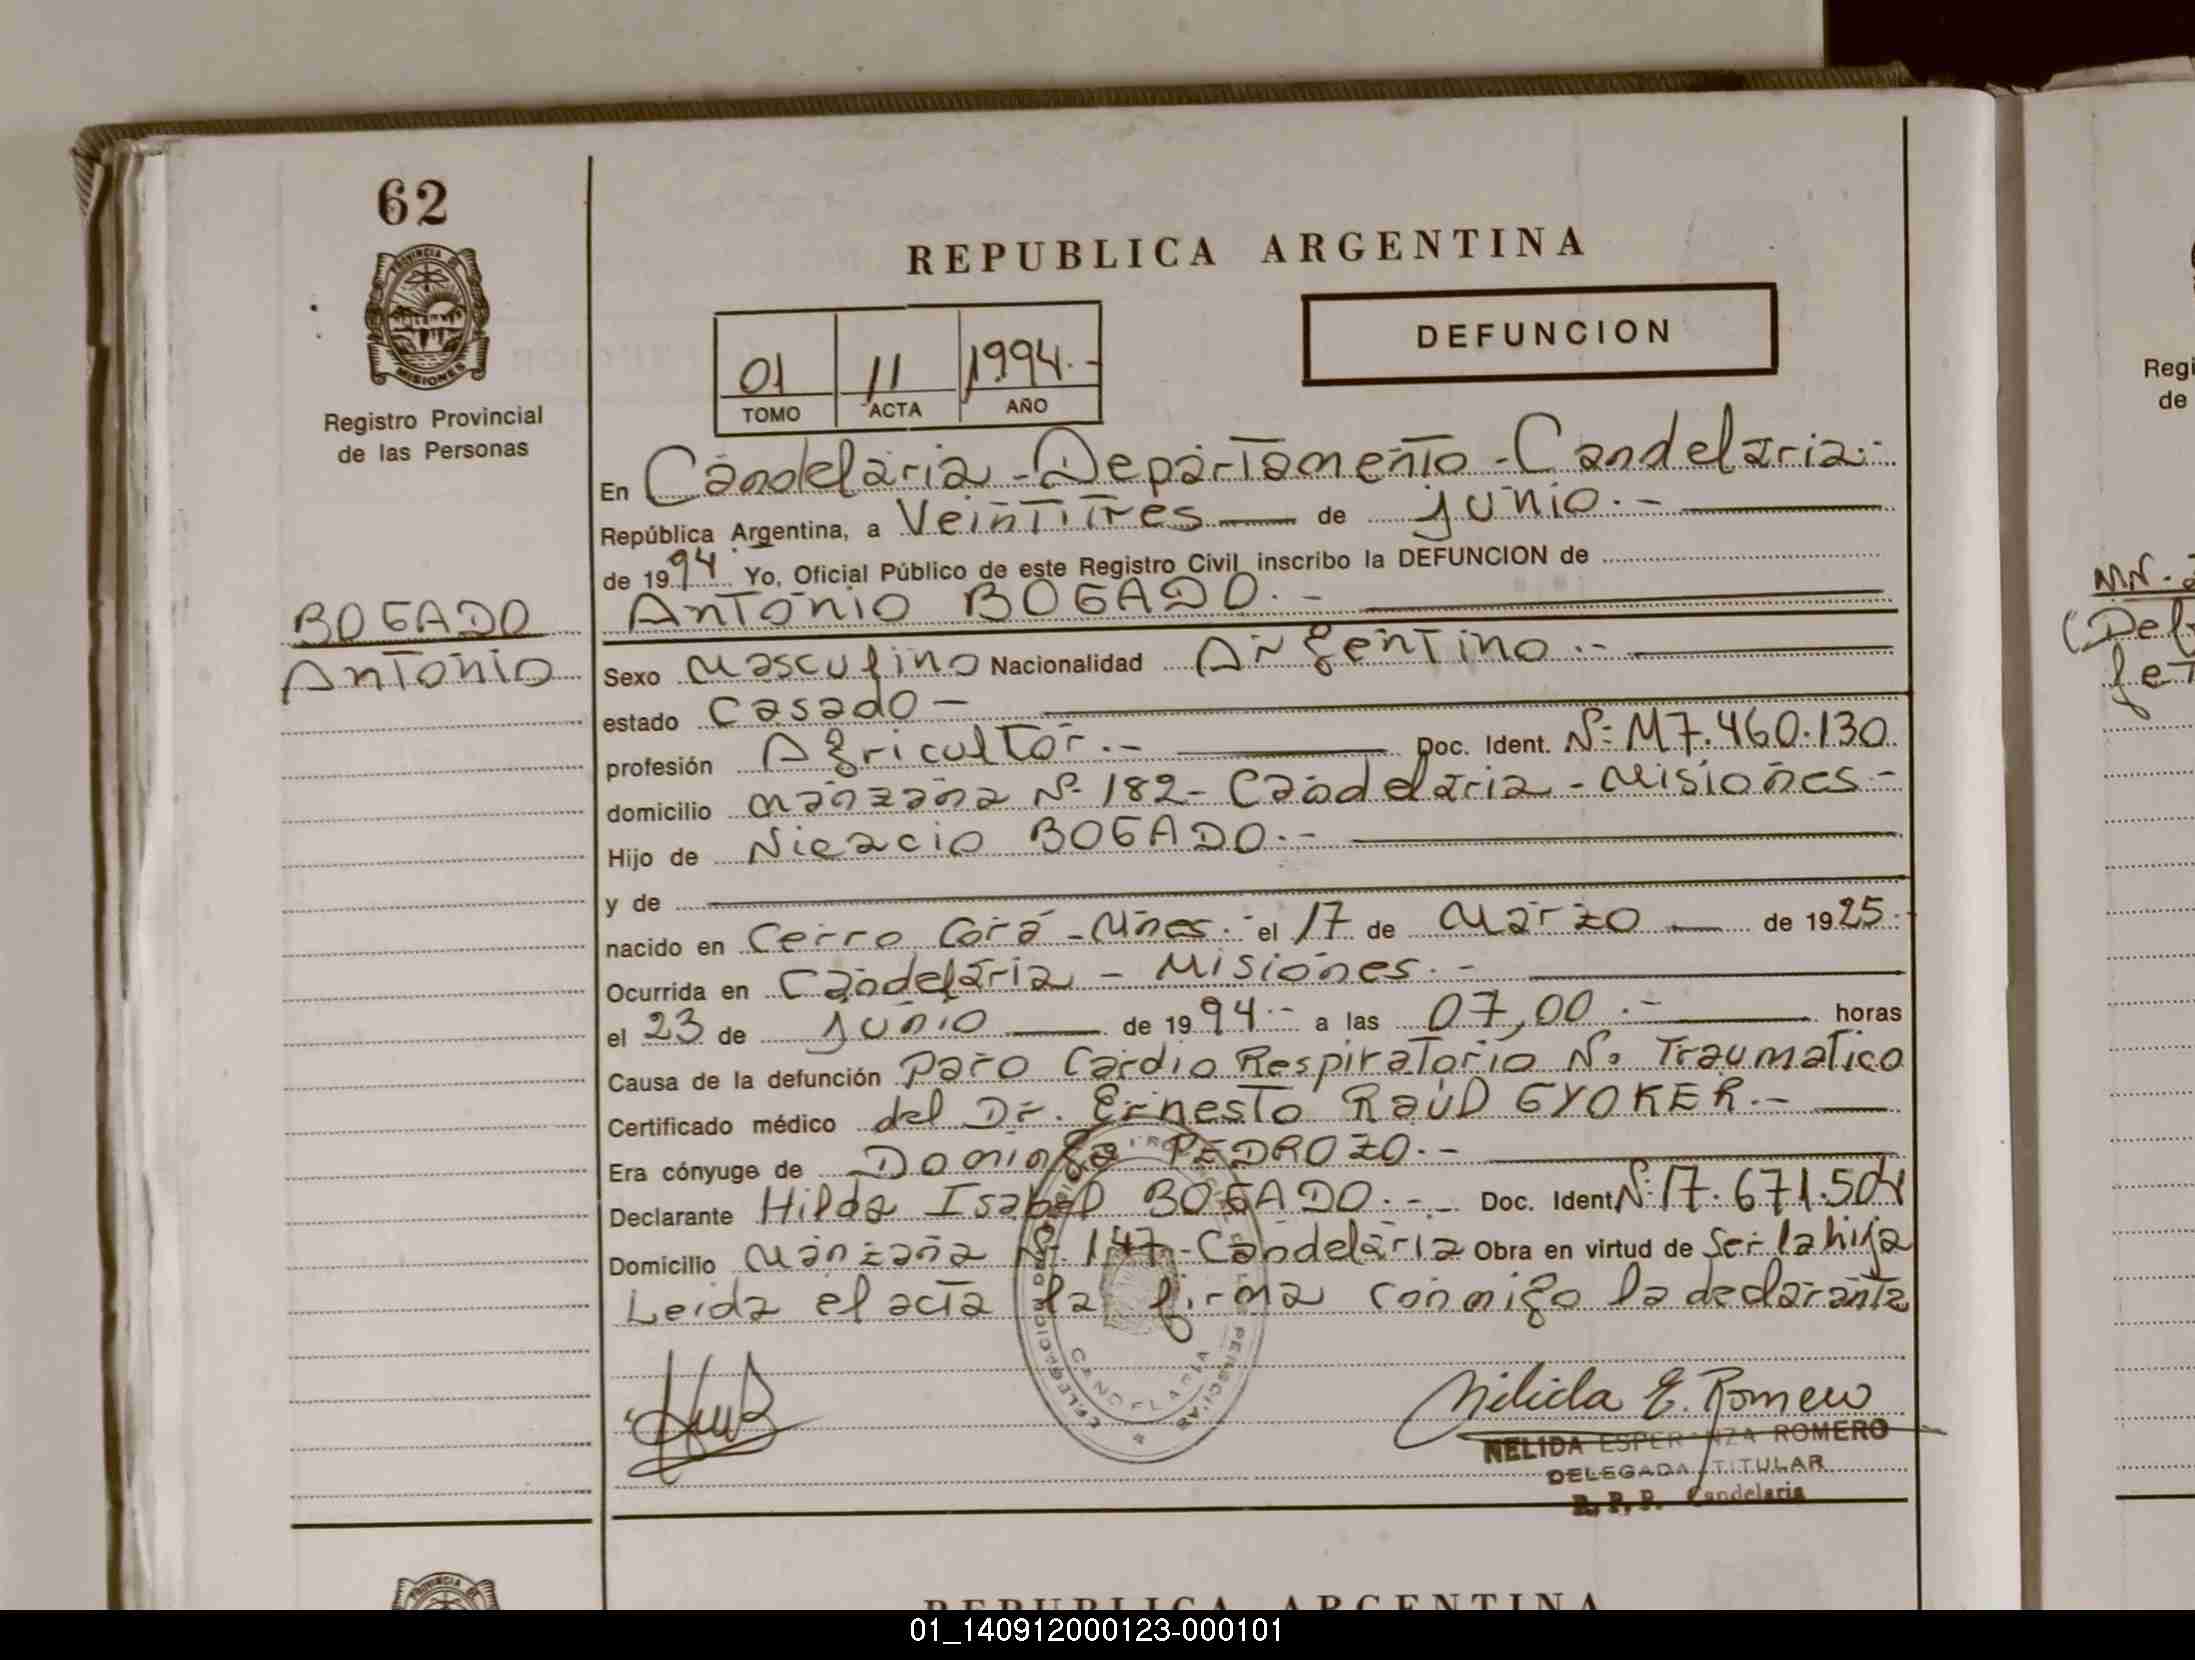 62
PROVINCIA DE
MISIONES
Registro Provincial
de las Personas
BOGADO
Antonio
REPUBLICA ARGENTINA
01 11 1994.-
TOMO ACTA AÑO
DEFUNCION
En Candelaria - Departamento - Candelaria.-
República Argentina, a Veintitres de junio.-
de 1994 Yo, Oficial Público de este Registro Civil inscribo la DEFUNCION de
Antonio BOGADO.-
Sexo Masculino Nacionalidad Argentino.-
estado Casado -
profesión Agricultor.- Doc. Ident. Nº M7.460.130
domicilio Manzana Nº 182 - Candelaria - Misiones -
Hijo de Nicacio BOGADO.-
y de
nacido en Cerro Corá - Mnes.- el 17 de Marzo de 1925.-
Ocurrida en Candelaria - Misiones.-
el 23 de junio de 1994.- a las 07,00.- horas
Causa de la defunción Paro Cardio Respiratorio No Traumatico
Certificado médico del Dr. Ernesto Raúl GYOKER.-
Era cónyuge de Dominga PEDROZO.-
Declarante Hilda Isabel BOGADO.- Doc. Ident Nº 17.671.504
Domicilio Manzana Nº 147 - Candelaria Obra en virtud de Ser la hija
Leida el acta la firma conmigo la declarante
CANDELARIA
Nélida E. Romero
NELIDA ESPERANZA ROMERO
DELEGADA TITULAR
R. P. P. Candelaria
PROVINCIA DE
REPUBLICA ARGENTINA
Regi
de
01_140912000123-000101